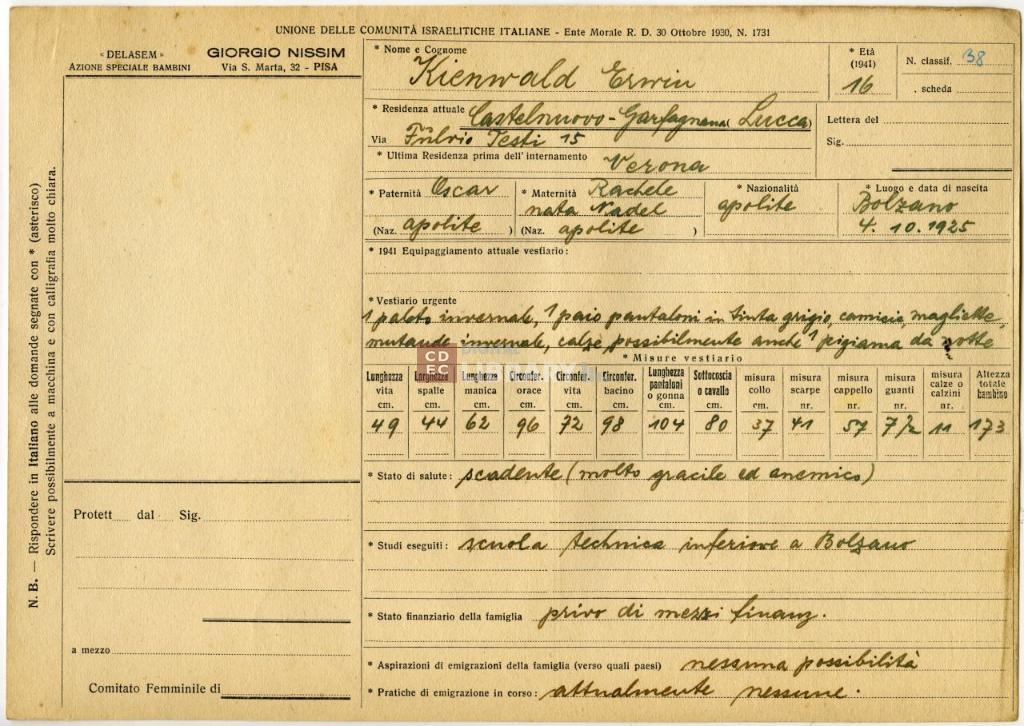 UNIONE DELLE COMUNITÀ ISRAELITICHE ITALIANE - Ente Morale R. D. 30 Ottobre 1930, N. 1731
« DELASEM »
AZIONE SPECIALE BAMBINI
GIORGIO NISSIM
Via S. Marta, 32 - PISA
* Nome e Cognome
Kienwald Erwin
* Età
(1941)
16
N. classif. 38
. scheda
* Residenza attuale Castelnuovo-Garfagnana (Lucca)
Via Fulvio Testi 15
Lettera del
Sig.
* Ultima Residenza prima dell'internamento Verona
* Paternità Oscar
(Naz. apolite )
* Maternità Rachele
nata Nadel
(Naz. apolite )
* Nazionalità
apolite
* Luogo e data di nascita
Bolzano
4. 10. 1925
* 1941 Equipaggiamento attuale vestiario:
* Vestiario urgente
1 paletò invernale, 1 paio pantaloni in tinta grigio, camicie, magliette,
mutande invernale, calze possibilmente anche 1 pigiama da notte
CD EC DIGITAL LIBRARY
* Misure vestiario
Lunghezza vita cm. 49
Larghezza spalle cm. 44
Lunghezza manica cm. 62
Circonfer. orace cm. 96
Circonfer. vita cm. 72
Circonfer. bacino cm. 98
Lunghezza pantaloni o gonna cm. 104
Sottocoscia o cavallo cm. 80
misura collo cm. 37
misura scarpe nr. 41
misura cappello nr. 57
misura guanti nr. 7 1/2
misura calze o calzini nr. 11
Altezza totale bambino 173
* Stato di salute: scadente (molto gracile ed anemico)
* Studi eseguiti: scuola technica inferiore a Bolzano
* Stato finanziario della famiglia privo di mezzi finanz.
* Aspirazioni di emigrazioni della famiglia (verso quali paesi) nessuna possibilità
* Pratiche di emigrazione in corso: attualmente nessune.
Protett dal Sig.
a mezzo
Comitato Femminile di
N. B. — Rispondere in Italiano alle domande segnate con * (asterisco)
Scrivere possibilmente a macchina e con calligrafia molto chiara.